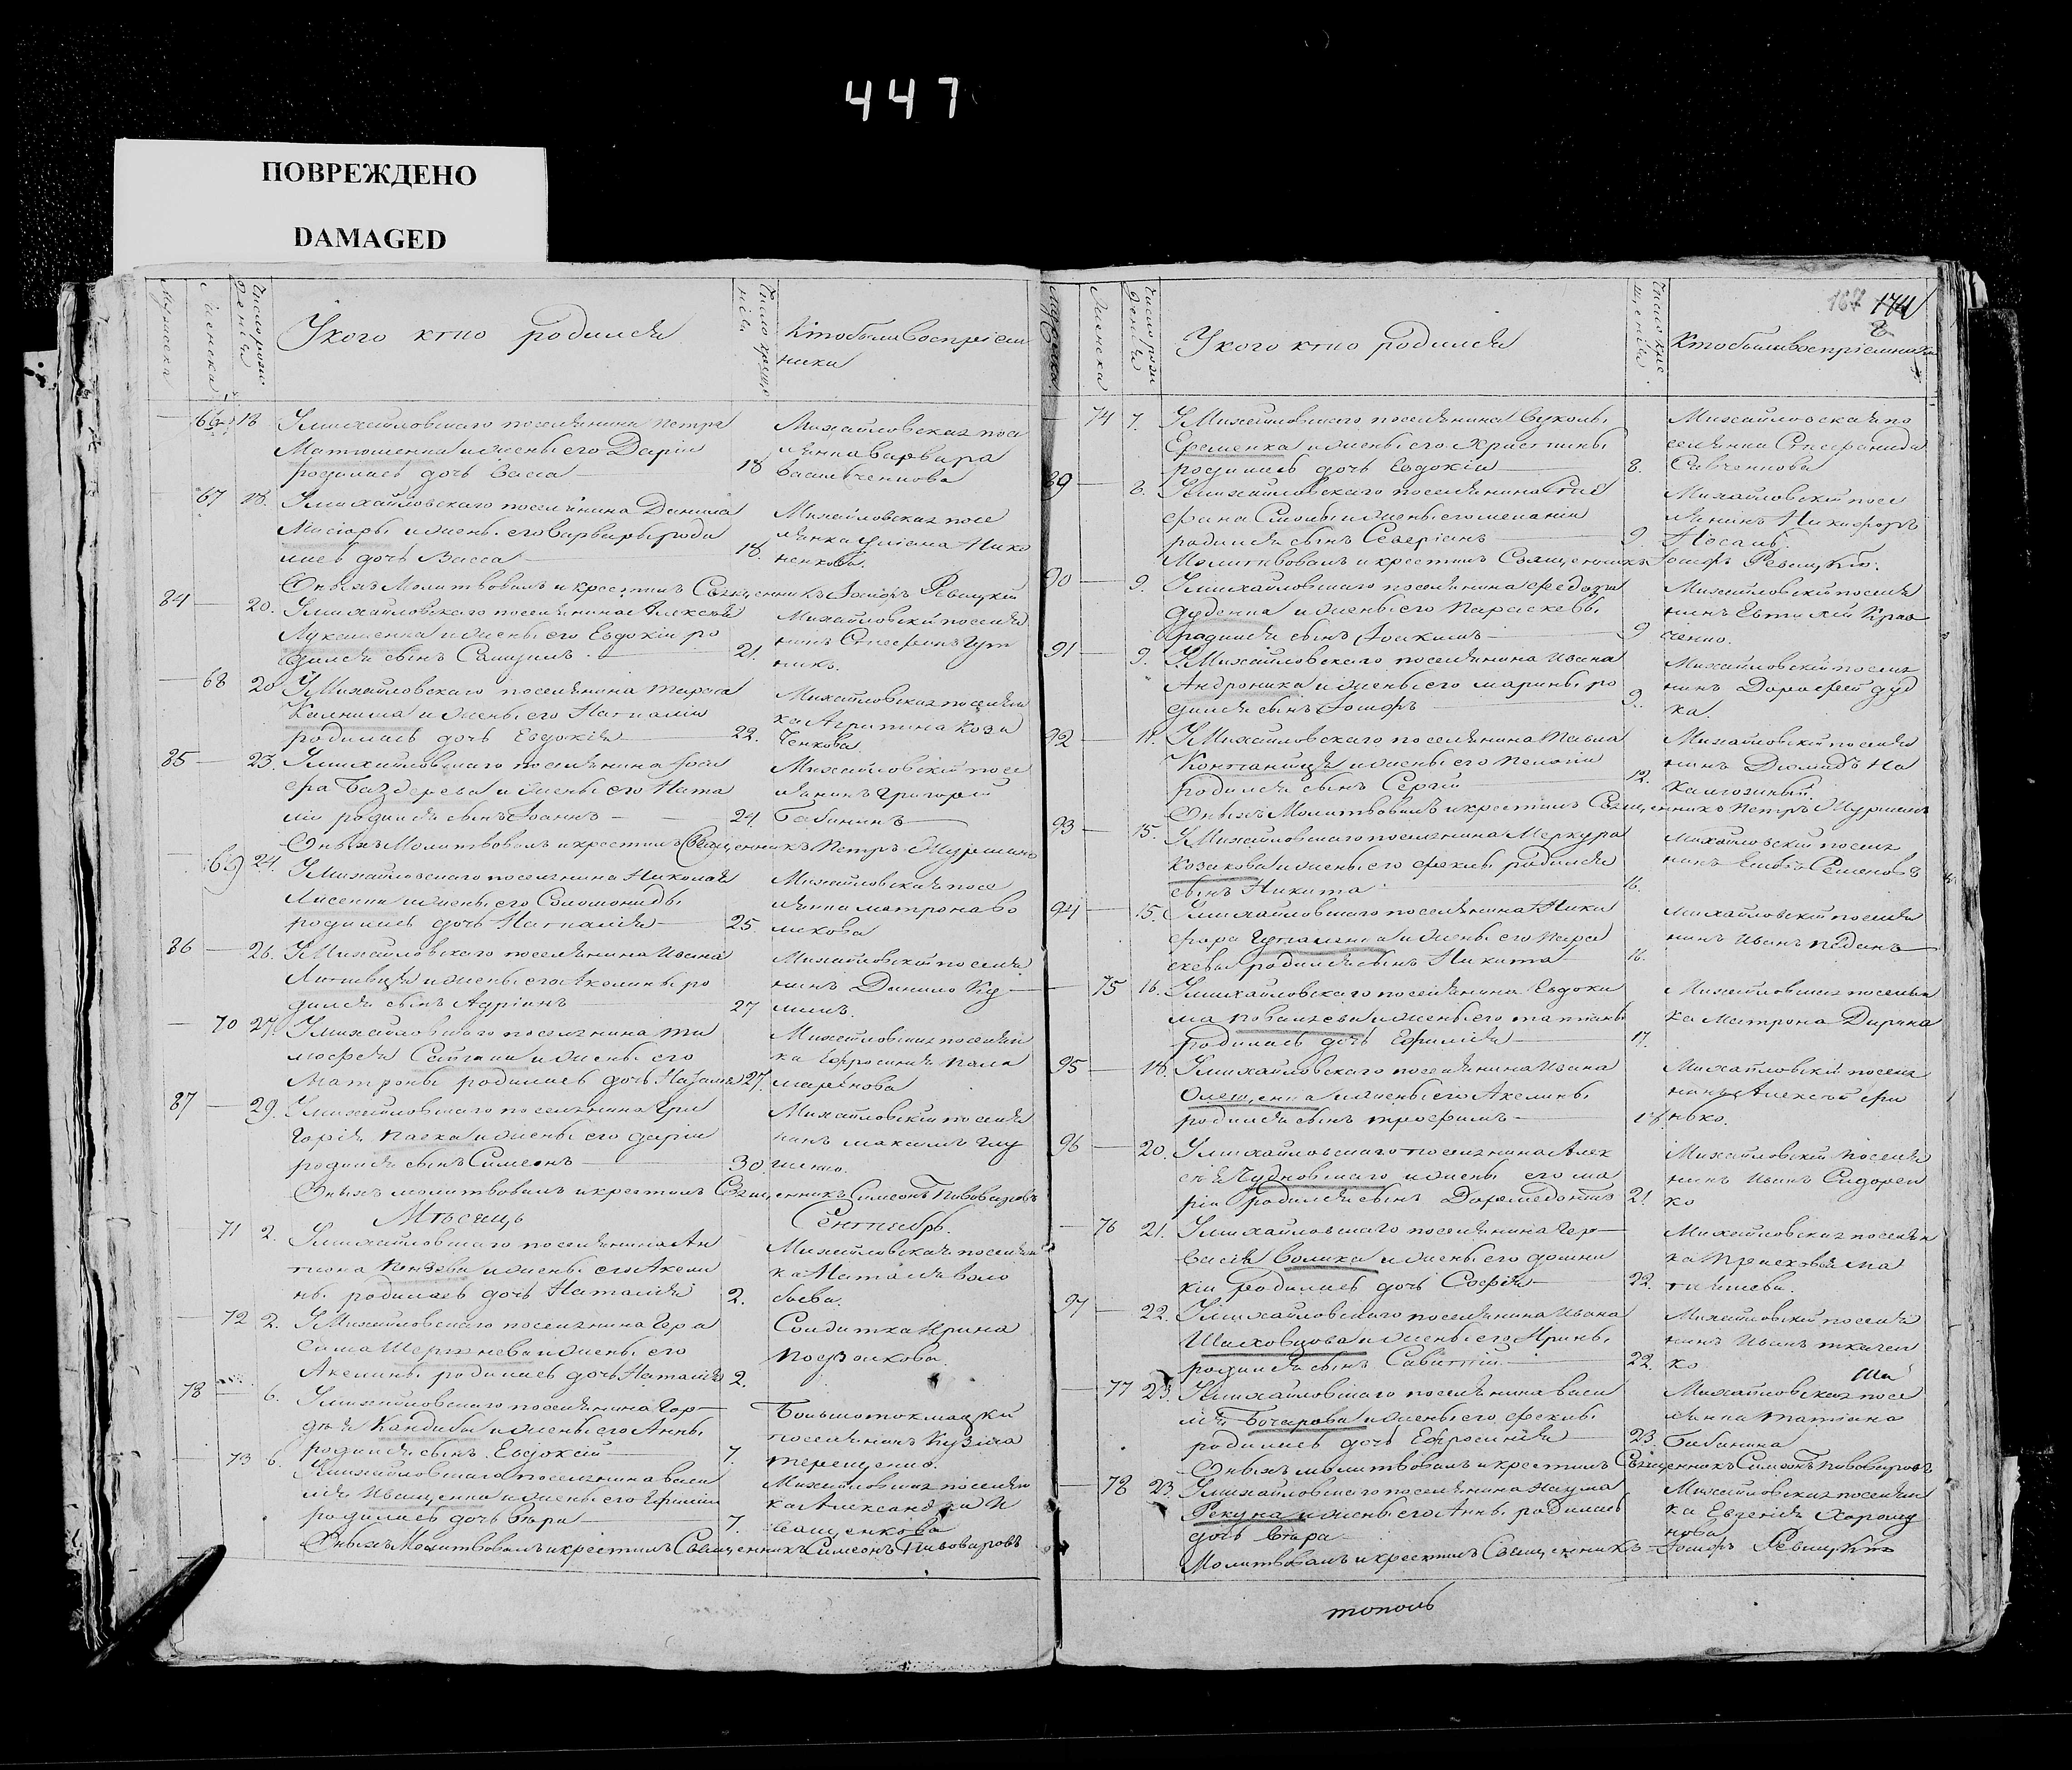 447
ПОВРЕЖДЕНО
DAMAGED
Мужеска
Женска
Число рожденія
У кого кто родился
Число крещенія
Кто были воспріем
ники
66 18 У михайловскаго поселянина Петра
Матюшенка и жены его Даріи
родилась дочь Васса 18
Михайловская посе
лянка Варвара
Васильченкова
67 18. У михайловскаго поселянина Данила
и жены его Варвары роди
лась дочь Васса 18.
Михайловская посе
лянка Уліана Нико
ненкова.
Оныхъ Молитвовалъ и крестилъ Священникъ Іосифъ Ревицкій
84 20. У михайловскаго поселянина Алексея
Лукашенка и жены его Евдокіи ро
дился сынъ Самуилъ 21.
Михайловскій поселя
нинъ Стефанъ Гут
никъ.
68 20 У Михайловскаго поселянина Тараса
Калниша и жены его Наталіи
родилась дочь Евдокія 22.
Михайловская поселян
ка Агрипина Коза
ченкова.
85 23. У михайловскаго поселянина Іоси
фа Баздерева и жены его Ната
ліи родился сынъ Іоаннъ 24.
Михайловскій посе
лянинъ Григорій
Бабанинъ
Оныхъ Молитвовалъ и крестилъ Священникъ Петръ
69 24. У Михайловскаго поселянина Николая
Лисенка и жены его Соломониды
родилась дочь Наталія 25.
Михайловская посе
лянка матрона Во
ликова
86 26. У Михайловскаго поселянина Ивана
Литвица и жены его Акелины ро
дился сынъ Адріанъ 27
Михайловскій поселя
нинъ Данило Ку
линъ.
70 27. У михайловскаго поселянина Ти
мофея и жены его
Матроны родилась дочь Наталія 27.
Михайловская поселян
ка Ефросинія Пала
марёнкова
87 29. У михайловскаго поселянина Гри
горія Паска и жены его Даріи
родился сынъ Симеонъ 30.
Михайловскій поселя
нинъ Максимъ Глу
щенко.
Оныхъ молитвовалъ и крестилъ Священникъ Симеонъ Пивоваровъ
Мѣсяць Сентябрь.
71 2. У михайловскаго поселянина Ан
тона и жены его Акели
ны родилась дочь Наталія 2.
Михайловская поселян
ка Наталія Воло
68 2. У Михайловскаго поселянина Гера
сима и жены его
Акелины родилась дочь Наталія 2.
Солдатка Ирина
Позолкова.
78 6. У михайловскаго поселянина Гор
дѣя Кандибы и жены его Анны
родился сынъ Евдокій 7.
Большотокмацкій
поселянинъ Кузма
терещенко.
73 6. У михайловскаго поселянина Васи
лія Иващенка и жены его Ефиміи
родилась дочь Вѣра 7.
Михайловская поселян
ка Александра И
ващенкова
Оныхъ Молитвовалъ и крестилъ Священникъ Симеонъ Пивоваровъ
167 174
Мужеска
Женска
У кого кто родился
Кто были воспріемники
74 7. У Михайловскаго поселянина Вуколы
Еременка и жены его Христины
родилась дочь Евдокія 8.
Михайловская по
селянка Стефанида
Савченкова
89 8. У михайловскаго поселянина Сте
фана Смолы и жены его меланіи
родился сынъ Северіанъ 9.
Михайловскій посе
лянинъ Никифоръ
Носань.
Молитвовалъ и крестилъ Священникъ Іосифъ Ревицкій.
90 9. У михайловскаго поселянина Федора
Дуденка и жены его Параскевы
родился сынъ Іоакимъ 9
Михайловскій поселя
нинъ Евтихій Крав
ченко.
91 9. У Михайловскаго поселянина Ивана
Андроника и жены его марины ро
дился сынъ Іосифъ 9.
Михайловскій поселя
нинъ Дорофей Дуд
ка.
92 11. У Михайловскаго поселянина Павла
и жены его Пелагіи
родился сынъ Сергій 12.
Михайловскій поселя
нинъ Діомидъ Ка
Оныхъ Молитвовалъ и крестилъ Священникъ Петръ
93 15. У Михайловскаго поселянина Меркура
Козакова и жены его Феклы родился
сынъ Никита 16.
Михайловскій поселя
нинъ Семеновъ
94 15. У михайловскаго поселянина Ники
фора и жены его Пара
скевы родился сынъ Никита 16.
Михайловскій поселя
нинъ Иванъ
75 16. У михайловскаго поселянина Евдоки
ма и жены его татіаны
родилась дочь Ефимія 17.
Михайловская поселян
ка Матрона
95 18. У михайловскаго поселянина Ивана
и жены его Акелины
родился сынъ трофимъ 18.
Михайловскій поселя
нинъ Алексей
нько.
96 20. У михайловскаго поселянина Алек
сѣя Чудновскаго и жены его ма
ріи родился сынъ Доримедонтъ 21.
Михайловскій поселя
нинъ Иванъ Сидорен
ко
76 21. У михайловскаго поселянина Гер
васія Волика и жены его домни
кіи родилась дочь Софія 22.
Михайловская поселян
ка Прасковія Ма
97 22. У михайловскаго поселянина Ивана
Шаховцова и жены его Ирины
родился сынъ Савватій 22.
Михайловскій поселя
нинъ Иванъ ткачен
ко
77 23. У михайловскаго поселянина Васи
лія Бочарова и жены его феклы
родилась дочь Ефросинія 23.
Михайловская посе
лянка татіана
Бабанина
Оныхъ молитвовалъ и крестилъ Священникъ Симеонъ Пивоваровъ
78 23. У михайловскаго поселянина Наума
Рекуна и жены его Анны родилась
дочь Вѣра
Михайловская поселян
ка Евгенія Харошу
нова
Молитвовалъ и крестилъ Священникъ Іосифъ Ревицкій
тополь